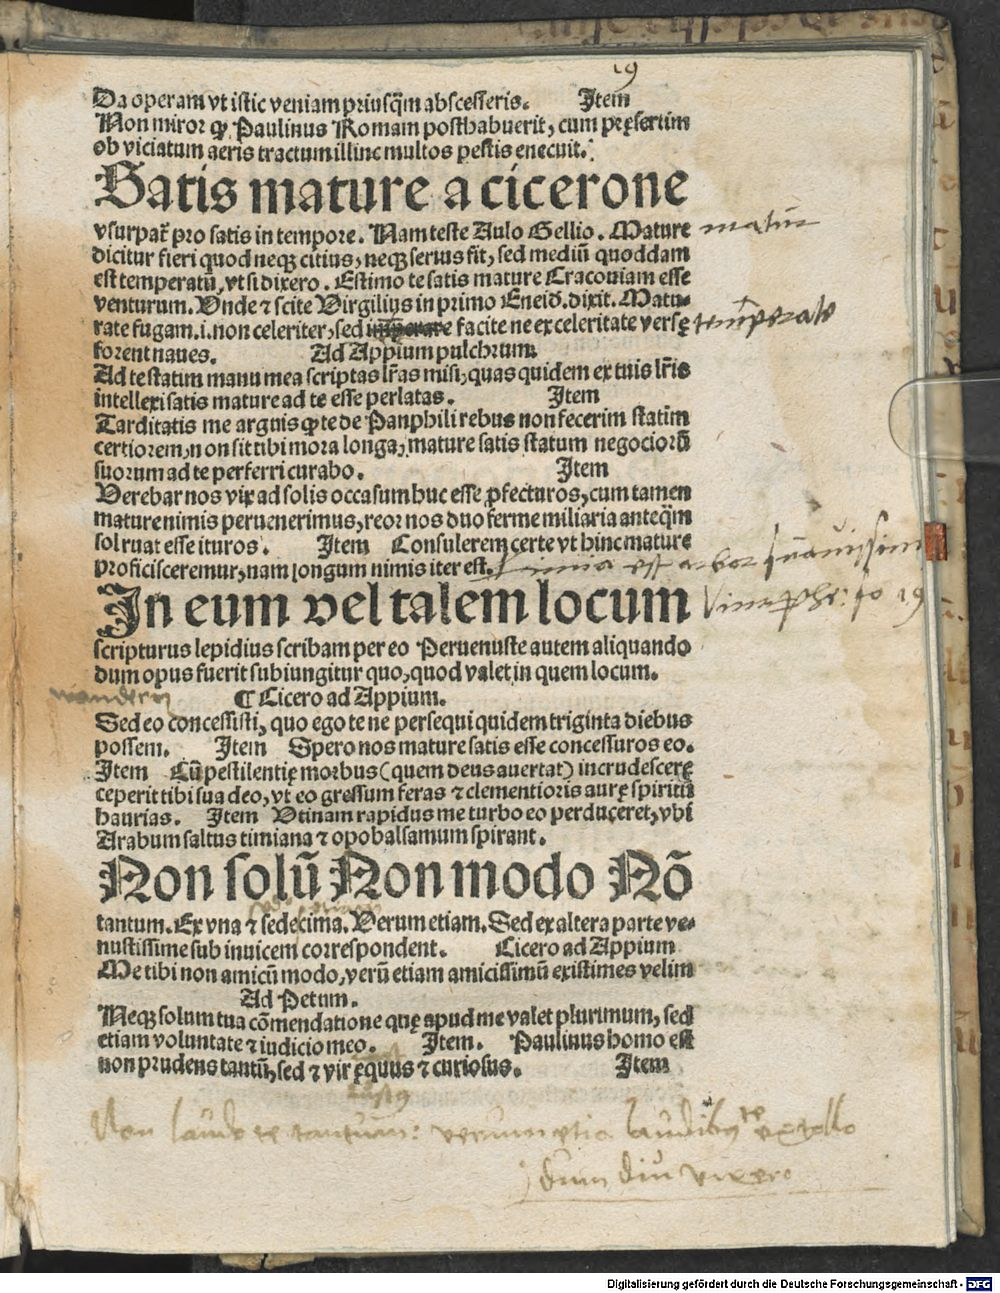 19
Da operam vt istic veniam priusq̃m abscesseris. Item
Non miror ꝙ Paulinus Romam posthabuerit, cum pręsertim
ob viciatum aeris tractum illinc multos pestis enecuit.
Satis mature a cicerone
vsurpat̃ pro satis in tempore. Nam teste Aulo Gellio. Mature
matur
dicitur fieri quod neqꝫ citius, neqꝫ serius fit, sed mediũ quoddam
est temperatũ, vt si dixero. Estimo te satis mature Cracouiam esse
venturum. Vnde ⁊ scite Virgilius in primo Eneid. dixit. Matu⸗
rate fugam .i. non celeriter, sed facite ne ex celeritate versę
temperate
forent naues. Ad Appium pulchrum.
Ad te statim manu mea scriptas lr̃as misi, quas quidem ex tuis lr̃is
intellexi satis mature ad te esse perlatas. Item
Tarditatis me arguis ꝙ te de Panphili rebus non fecerim statim
certiorem, non sit tibi mora longa, mature satis statum negociorũ
suorum ad te perferri curabo. Item
Verebar nos vix ad solis occasum huc esse ꝓfecturos, cum tamen
mature nimis peruenerimus, reor nos duo ferme miliaria anteq̃m
sol ruat esse ituros. Item Consulerem certe vt hinc mature
proficisceremur, nam longum nimis iter est.
est arbor suauissim
In eum vel talem locum
fo 19
scripturus lepidius scribam per eo Peruenuste autem aliquando
dum opus fuerit subiungitur quo, quod valet in quem locum.
wandern
¶ Cicero ad Appium.
Sed eo concessisti, quo ego te ne persequi quidem triginta diebus
possem. Item Spero nos mature satis esse concessuros eo.
Item Cũ pestilentię morbus (quem deus auertat) incrudescere
ceperit tibi suadeo, vt eo gressum feras ⁊ clementioris aurę spiritũ
haurias. Item Vtinam rapidus me turbo eo perduceret, vbi
Arabum saltus timiana ⁊ opobalsamum spirant.
Non solũ Non modo Nõ
tantum. Ex vna ⁊ sedecima. Verum etiam. Sed ex altera parte ve⸗
nustissime sub inuicem correspondent. Cicero ad Appium
Me tibi non amicũ modo, verũ etiam amicissimũ existimes velim
Ad Petum.
Neqꝫ solum tua cõmendatione quę apud me valet plurimum, sed
etiam voluntate ⁊ iudicio meo. Item. Paulinus homo est
non prudens tantũ, sed ⁊ vir ęquus ⁊ curiosus. Item
Non laudo te tantum: verum etia laudibus te extollo
dum diu vixero